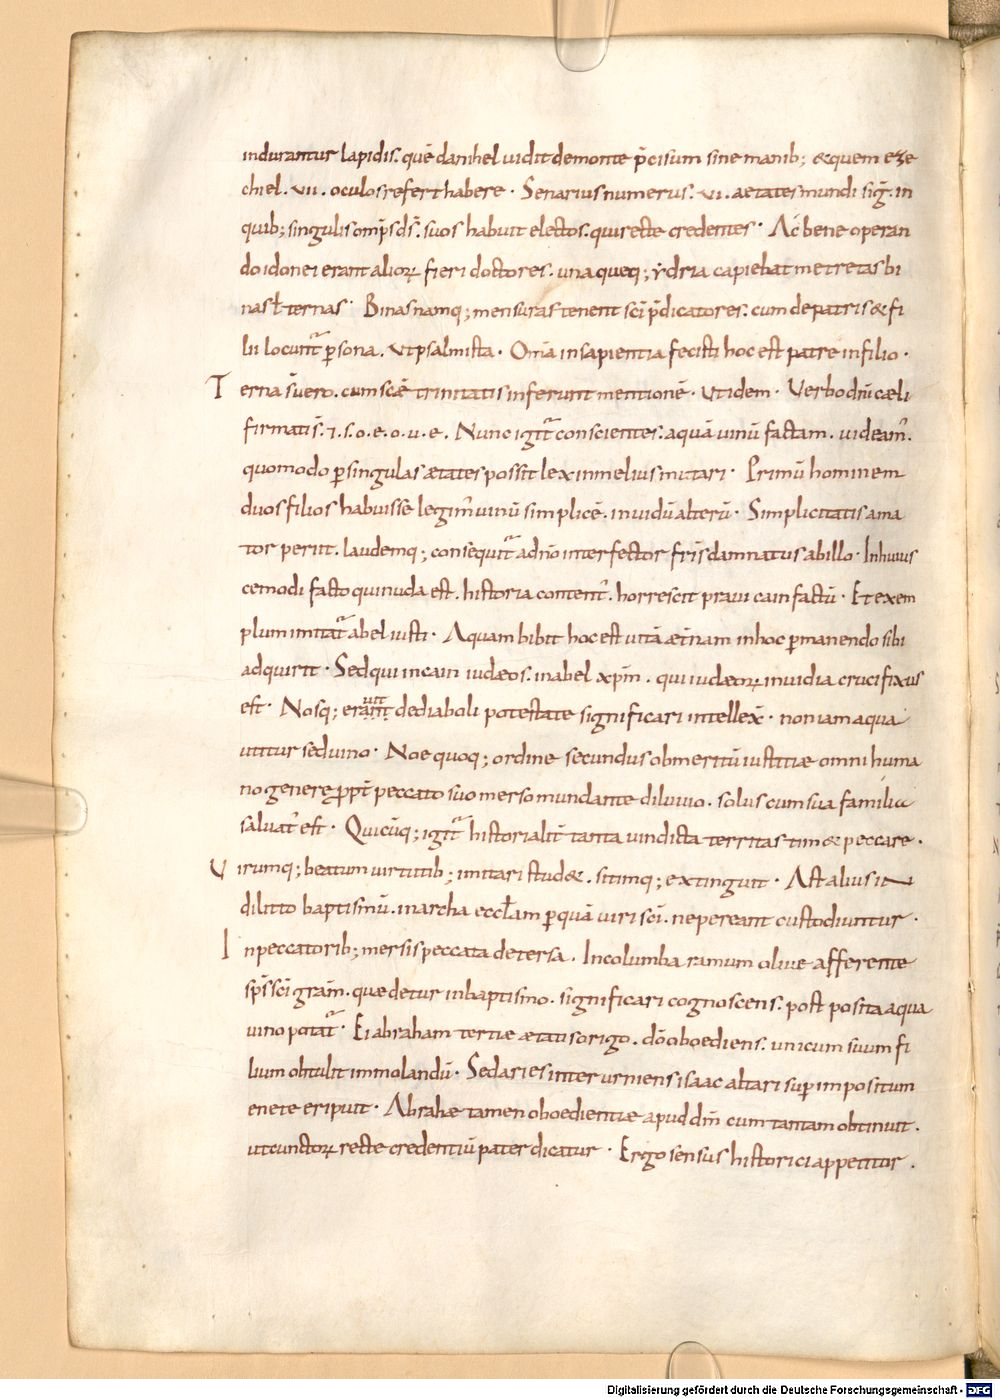 indurantur lapidis. quē danihel uidit demonte p̄cisum sine manib; &quem eze
chiel. vii. oculos refert habere · Senarius numerus. vi. aetates mundi sig̅. in
quib; singulis omp̄s ds̄. suos habuit electos. qui recte credentes · Ac bene operan
do idonei erant alioꝝ fieri doctores. una queq; ydria capiebat metretas bi
nas ł ternas · Binas namq; mensuras tenent sc̄i p̄dicatores. cum de patris & fi
lii locunt᷑ ꝑsona. ut psalmista · Om̄ia in sapientia fecisti hoc est patre in filio ·
Ternas uero. cum sc̄ae trinitatis inferunt mentionē · ut idem · Verbo dn̄i caeli
firmati s̄. ⁊. s. o. e. o. u. e. Nunc igit᷑ conscientes. aquā uinū factam. uideam̄.
quomodo ꝑ singulas ætates possit lex in melius mutari · Primū hominem
duos filios habuisse legim̄ unū simplicē. inuidū alterū · Simplicitatis ama
tor periit. laudemq; consequit᷑ a dn̄o interfector fr̄is damnatus ab illo · In huius
cemodi facto qui nuda est. historia content̄. horrescit praui cain factū · Et exem
plum imitat᷑ abel iusti · Aquam bibit hoc est uitā æt̄nam in hoc ꝑmanendo sibi
adquirit · Sed qui in cain iudæos. in abel xp̄m. qui iudæoꝝ inuidia crucifixus
est · Nosq; de diaboli potestate significari intellex̄ · non iam aqua
utitur sed uino · Noe quoq; ordine secundus ob meritū iustitiæ omni huma
no genere ꝓpt̄ peccato suo merso mundante diluuio. solus cum sua familia
saluat̄ est · Quicūq; igit᷑ historialit̄ tanta uindicta territas tim& peccare ·
Virumq; beatum uirtutib; imitari stud&. sitimq; extinguit · Ast alius in
diluuio baptismū. in archa ecc̄lam ꝑ quā uiri sc̄i. ne pereant custodiuntur ·
In peccatorib; mersis peccata detersa. In columba ramum oliuæ afferente
sp̄s sc̄i gr̄am. quæ detur in baptismo. significari cognoscens. post posita aqua
uino potat᷑ · Ei abraham tertiæ ætatis origo. dō oboediens. unicum suum fi
lium obtulit immolandū · Sed aries inter urniens isaac altari suꝑ impositum
e nete eripuit · Abrahæ tamen oboedientiæ apud dm̄ cum tantam obtinuit.
ut cunctoꝝ recte credentiū pater dicatur · Ergo sensus historici appetitor.
Digitalisierung gefördert durch die Deutsche Forschungsgemeinschaft - DFG